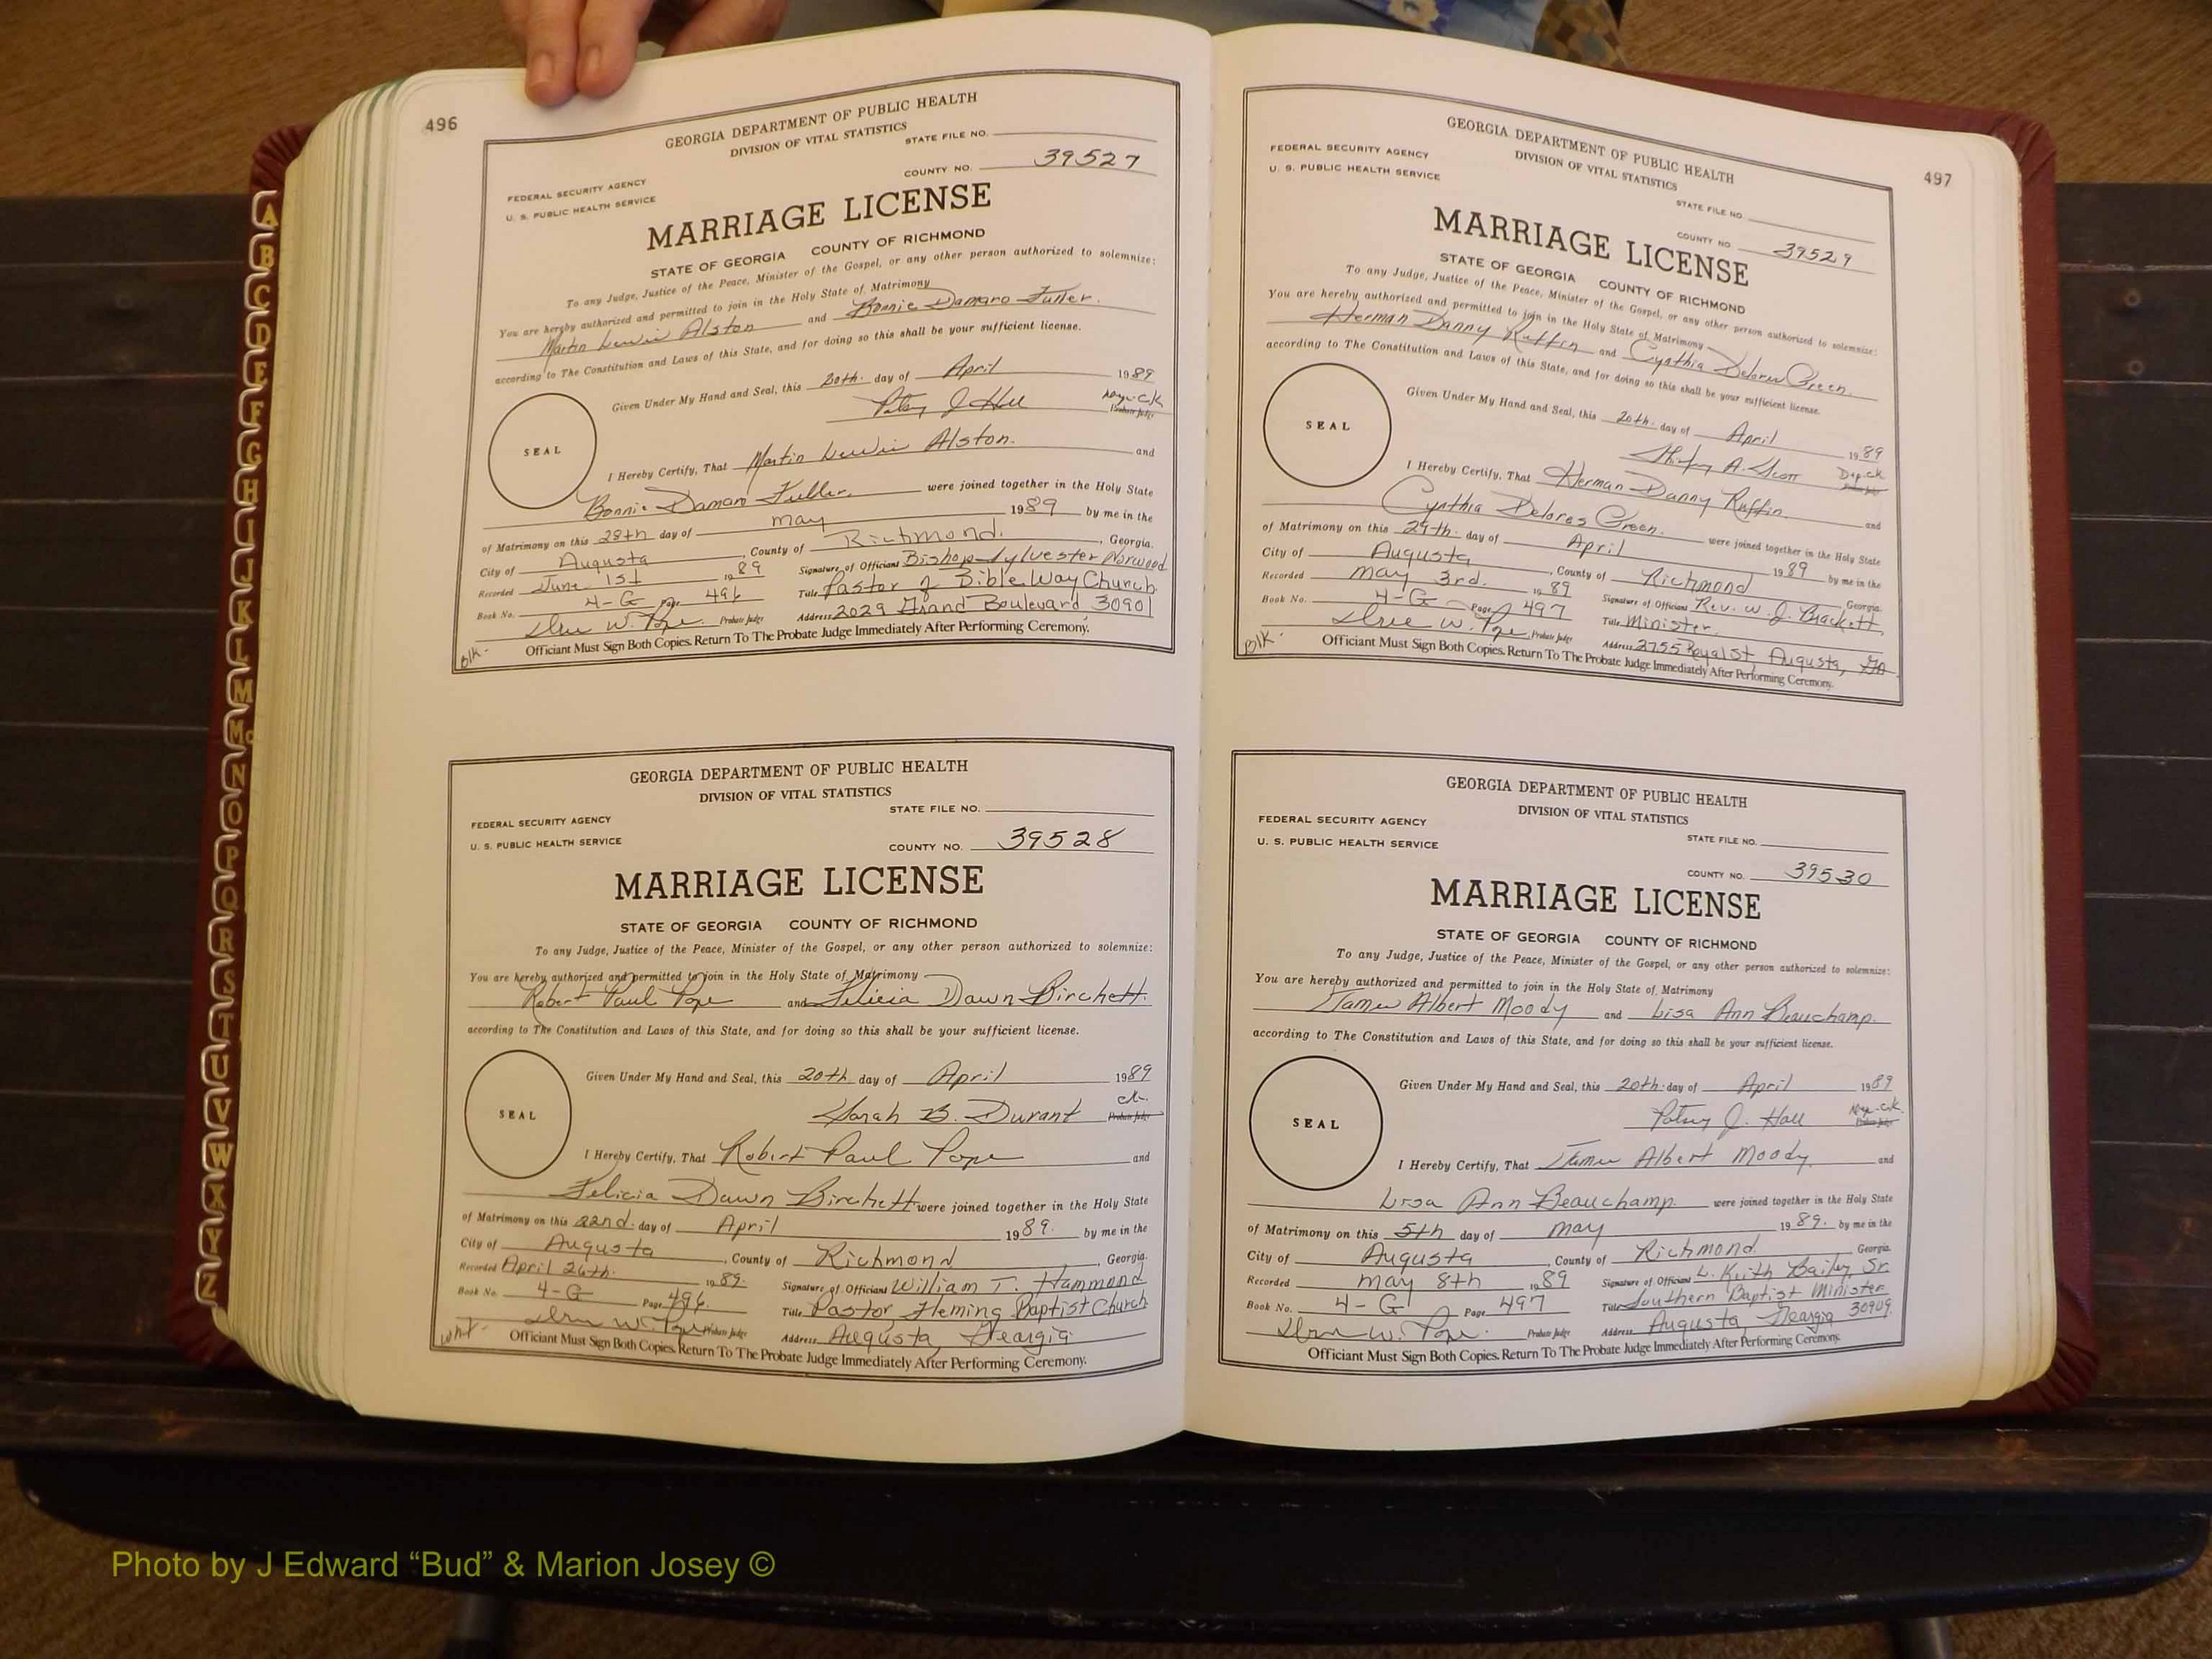 496
GEORGIA DEPARTMENT OF PUBLIC HEALTH
DIVISION OF VITAL STATISTICS
STATE FILE NO.
FEDERAL SECURITY AGENCY
U. S. PUBLIC HEALTH SERVICE
COUNTY NO. 39527
MARRIAGE LICENSE
STATE OF GEORGIA COUNTY OF RICHMOND
To any Judge, Justice of the Peace, Minister of the Gospel, or any other person authorized to solemnize:
You are hereby authorized and permitted to join in the Holy State of Matrimony
Martin Lewis Alston and Bonnie Damaro Fuller.
according to The Constitution and Laws of this State, and for doing so this shall be your sufficient license.
Given Under My Hand and Seal, this 20th. day of April 1989
Patsy J Hall
Probate Judge
SEAL
I Hereby Certify, That Martin Lewis Alston. and
Bonnie Damaro Fuller. were joined together in the Holy State
of Matrimony on this 28th day of may 1989 by me in the
City of Augusta, County of Richmond., Georgia.
Recorded June 1st 1989 Signature of Officiant Bishop Sylvester Norwood
Book No. 4-G Page 496 Title Pastor of Bible Way Church
Probate Judge Address 2029 Grand Boulevard 30901
Blk- Officiant Must Sign Both Copies. Return To The Probate Judge Immediately After Performing Ceremony.
GEORGIA DEPARTMENT OF PUBLIC HEALTH
DIVISION OF VITAL STATISTICS
STATE FILE NO.
FEDERAL SECURITY AGENCY
U. S. PUBLIC HEALTH SERVICE
COUNTY NO. 39528
MARRIAGE LICENSE
STATE OF GEORGIA COUNTY OF RICHMOND
To any Judge, Justice of the Peace, Minister of the Gospel, or any other person authorized to solemnize:
You are hereby authorized and permitted to join in the Holy State of Matrimony
Robert Paul Pope and Felicia Dawn Birchett.
according to The Constitution and Laws of this State, and for doing so this shall be your sufficient license.
Given Under My Hand and Seal, this 20th day of April 1989
Sarah B. Durant ck.
Probate Judge
SEAL
I Hereby Certify, That Robert Paul Pope and
Felicia Dawn Birchett were joined together in the Holy State
of Matrimony on this 22nd. day of April 1989. by me in the
City of Augusta, County of Richmond, Georgia.
Recorded April 26th. 1989. Signature of Officiant William T. Hammond
Book No. 4-G Page 496. Title Pastor, Fleming Baptist Church
Probate Judge Address Augusta, Georgia
Wht- Officiant Must Sign Both Copies. Return To The Probate Judge Immediately After Performing Ceremony.
497
GEORGIA DEPARTMENT OF PUBLIC HEALTH
DIVISION OF VITAL STATISTICS
FEDERAL SECURITY AGENCY
U. S. PUBLIC HEALTH SERVICE
STATE FILE NO.
COUNTY NO. 39529
MARRIAGE LICENSE
STATE OF GEORGIA COUNTY OF RICHMOND
To any Judge, Justice of the Peace, Minister of the Gospel, or any other person authorized to solemnize:
You are hereby authorized and permitted to join in the Holy State of Matrimony
Herman Danny Ruffin and Cynthia Delores Green.
according to The Constitution and Laws of this State, and for doing so this shall be your sufficient license.
Given Under My Hand and Seal, this 20th. day of April 1989
A. Scott Dep.ck
SEAL
I Hereby Certify, That Herman Danny Ruffin. and
Cynthia Delores Green. were joined together in the Holy State
of Matrimony on this 29th. day of April 1989 by me in the
City of Augusta, County of Richmond Georgia.
Recorded may 3rd. 1989 Signature of Officiant Rev. W. J. Brackett,
Book No. 4-G Page 497 Title Minister.
Probate Judge Address 2755 Royal St, Augusta, Ga
Blk- Officiant Must Sign Both Copies. Return To The Probate Judge Immediately After Performing Ceremony.
GEORGIA DEPARTMENT OF PUBLIC HEALTH
DIVISION OF VITAL STATISTICS
FEDERAL SECURITY AGENCY
U. S. PUBLIC HEALTH SERVICE
STATE FILE NO.
COUNTY NO. 39530
MARRIAGE LICENSE
STATE OF GEORGIA COUNTY OF RICHMOND
To any Judge, Justice of the Peace, Minister of the Gospel, or any other person authorized to solemnize:
You are hereby authorized and permitted to join in the Holy State of Matrimony
James Albert Moody and Lisa Ann Beauchamp.
according to The Constitution and Laws of this State, and for doing so this shall be your sufficient license.
Given Under My Hand and Seal, this 20th. day of April 1989
Patsy J. Hall
Probate Judge
SEAL
I Hereby Certify, That James Albert Moody. and
Lisa Ann Beauchamp. were joined together in the Holy State
of Matrimony on this 5th day of may 1989. by me in the
City of Augusta, County of Richmond. Georgia.
Recorded may 8th 1989 Signature of Officiant L. Keith Bailey, Sr
Book No. 4-G Page 497 Title Southern Baptist Minister
Probate Judge Address Augusta, Georgia 30909.
Officiant Must Sign Both Copies. Return To The Probate Judge Immediately After Performing Ceremony.
A
B
C
D
E
F
G
H
I
J
K
L
M
Mc
N
O
P
Q
R
S
T
U
V
W
X
Y
Z
Photo by J Edward “Bud” & Marion Josey ©